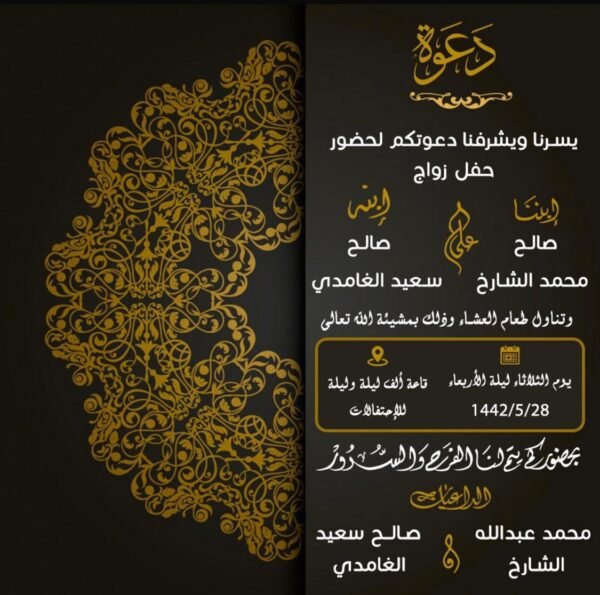 دعوة
يسرنا ويشرفنا دعوتكم لحضور
حفل زواج
إبننا على إبنه
صالح صالح
محمد الشارخ سعيد الغامدي
وتناول طعام العشاء وذلك بمشيئة الله تعالى
يوم الثلاثاء ليلة الأربعاء قاعة ألف ليلة وليلة
1442/5/28 للإحتفالات
بحضوركم يتم لنا الفرح والسرور
الداعيان
محمد عبدالله و صالح سعيد
الشارخ الغامدي